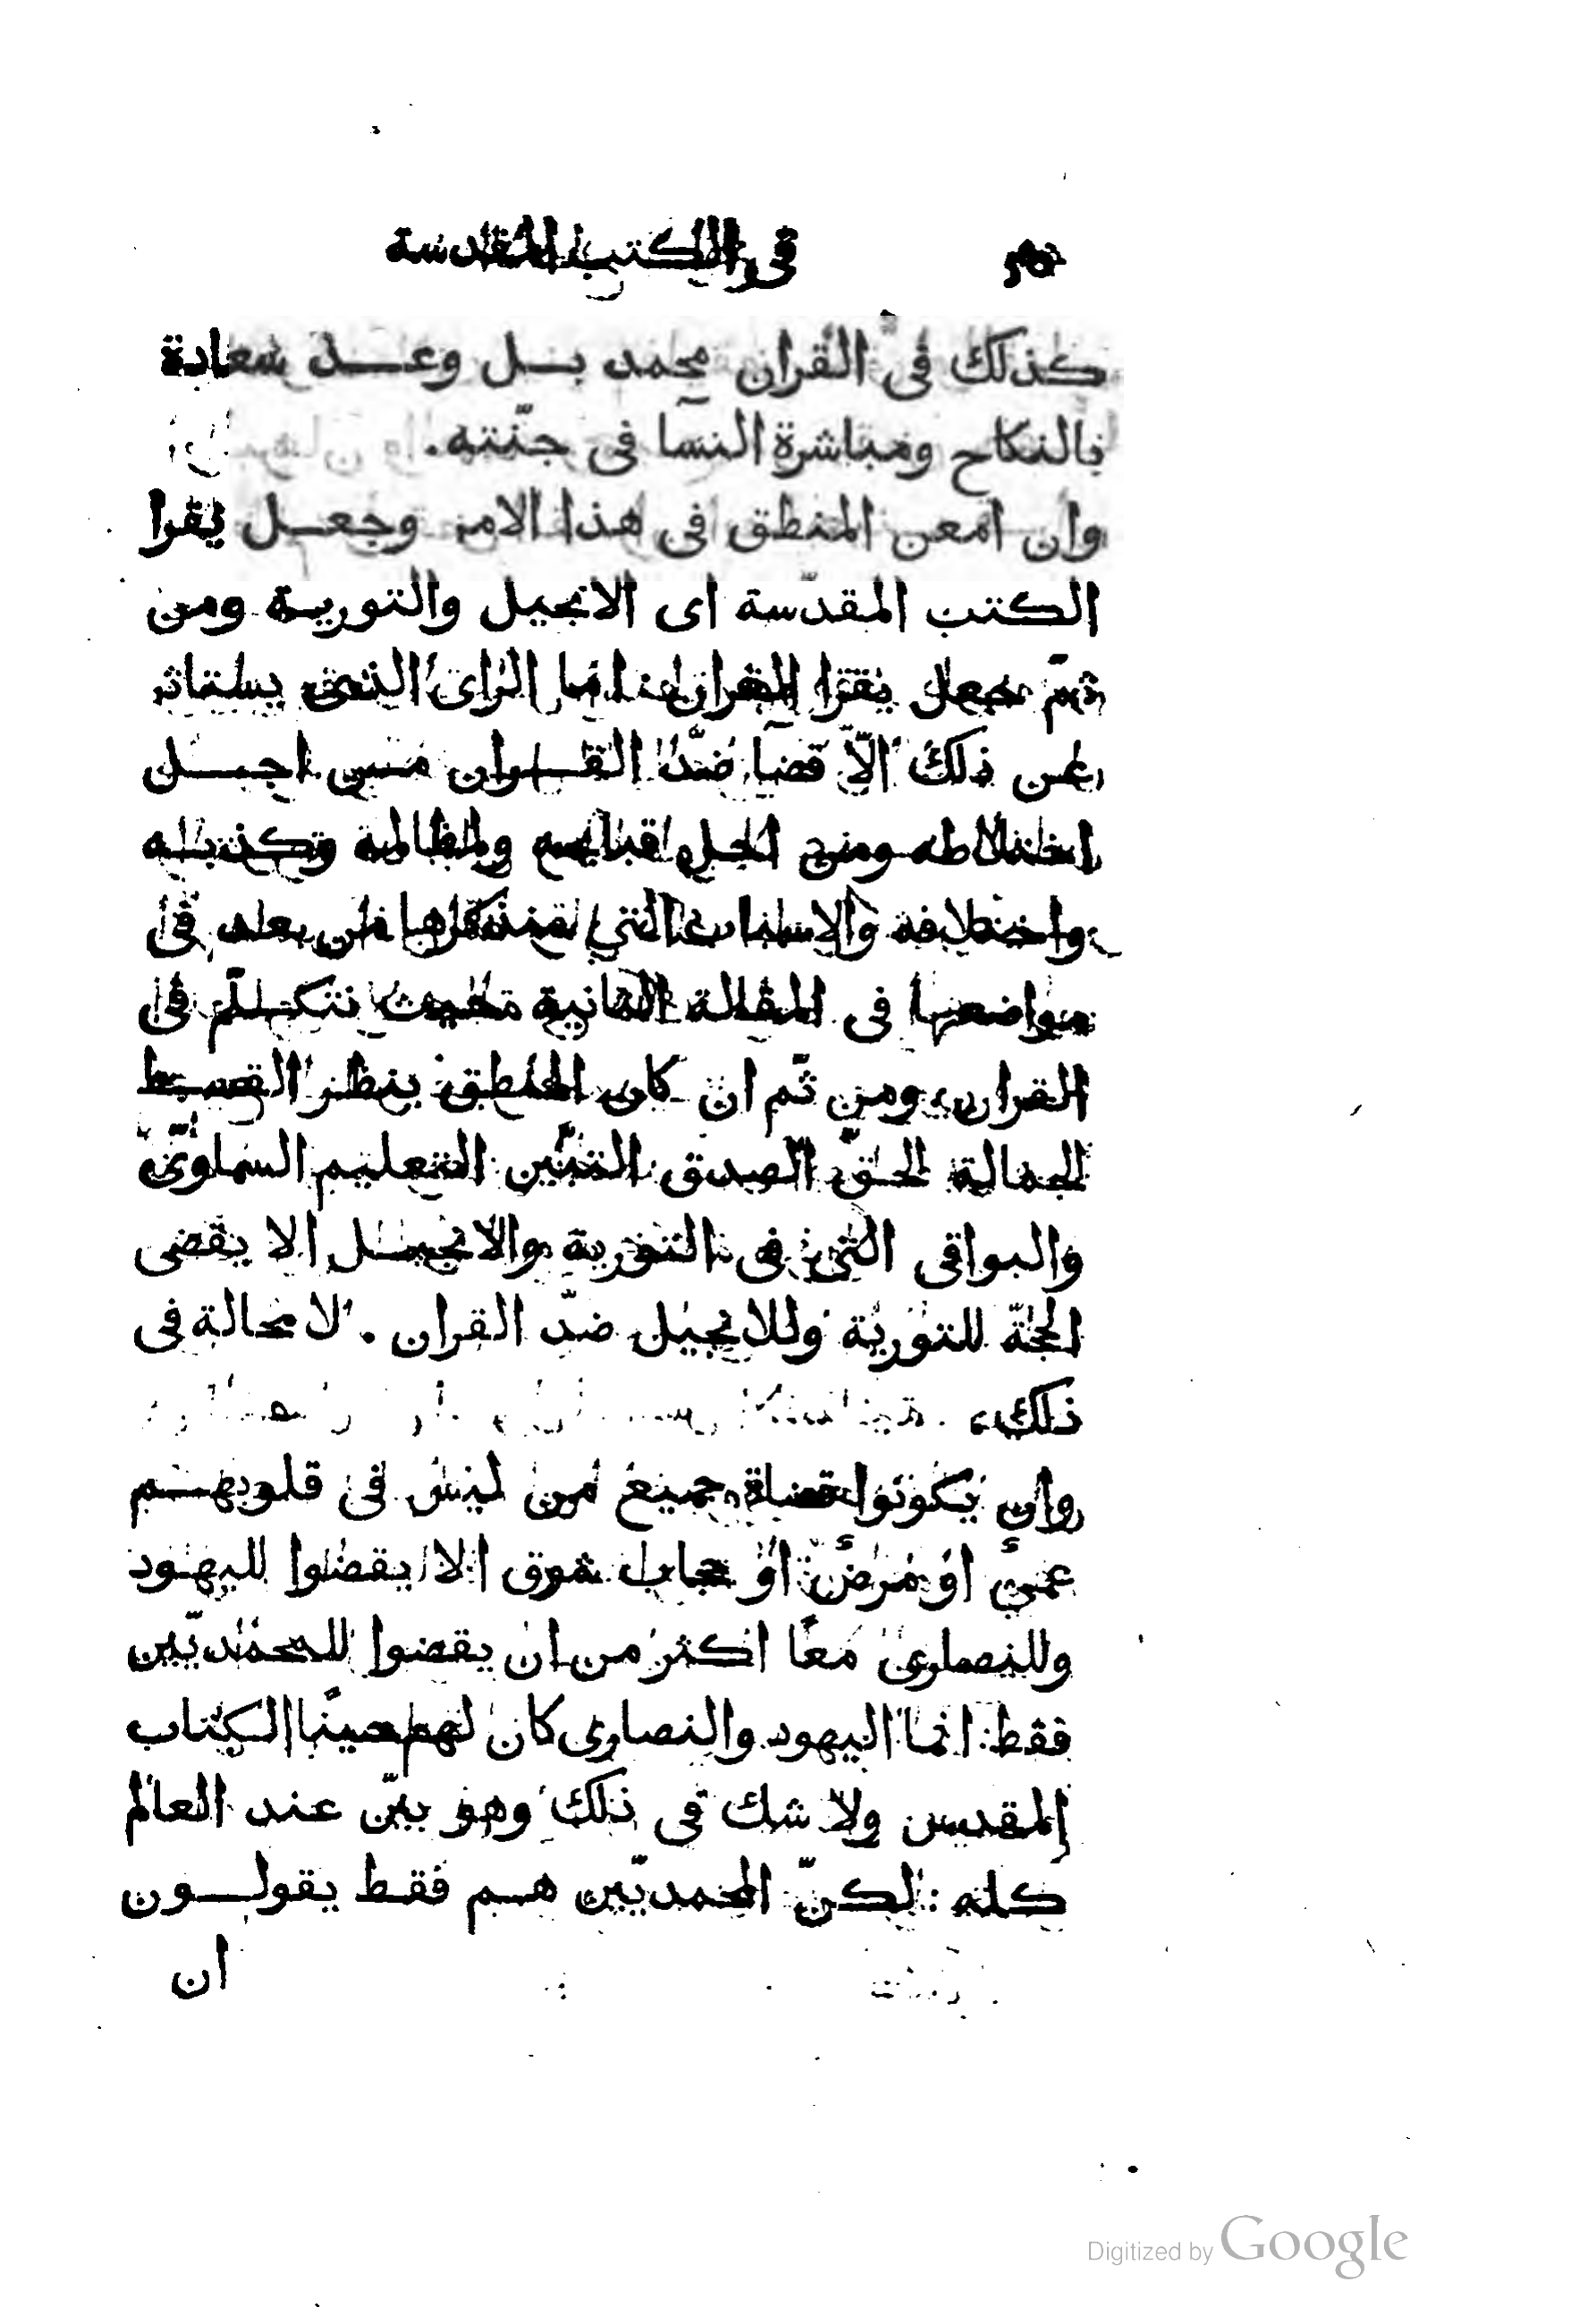 فى الكتب المقدسة
كذلك فى القران محمد بل وعد سعادة
بالنكاح ومباشرة النسا فى جنّته.
وان امعن المنطق فى هذا الامر وجعل يقرا
الكتب المقدّسة اى الانجيل والتورية ومن
ثمّ جعل يقرا القران انما الراى الذى
عن ذلك الّا قضآ ضدّ القران من اجل
اختلاطه ومن اجل قبايحه ومظالمه وكذبه
واختلافه والاسباب التى نذكرها من بعد فى
مواضعها فى المقالة الثانية حيث نتكلّم فى
القران، ومن ثّم ان كان المنطق ينظر القسط
الجمالية الحقّ الصدق التبيّن التعليم السماوىّ
والبواقى التى فى التورية والانجيل الا يقضى
الحجّة للتورية وللانجيل ضدّ القران. لا محالة فى
ذلك،
وان يكونوا قضاة جميع من ليس فى قلوبهم
عمىً او مرضً او حجاب الا يقضوا لليهود
وللنصارى معًا اكثر من ان يقضوا للمحمّديّين
فقط انما اليهود والنصارى كان لهم حينًا الكتاب
المقدس ولا شك فى ذلك وهو بيّن عند العالم
كله لكنّ المحمديّين هم فقط يقولون
ان
Digitized by Google